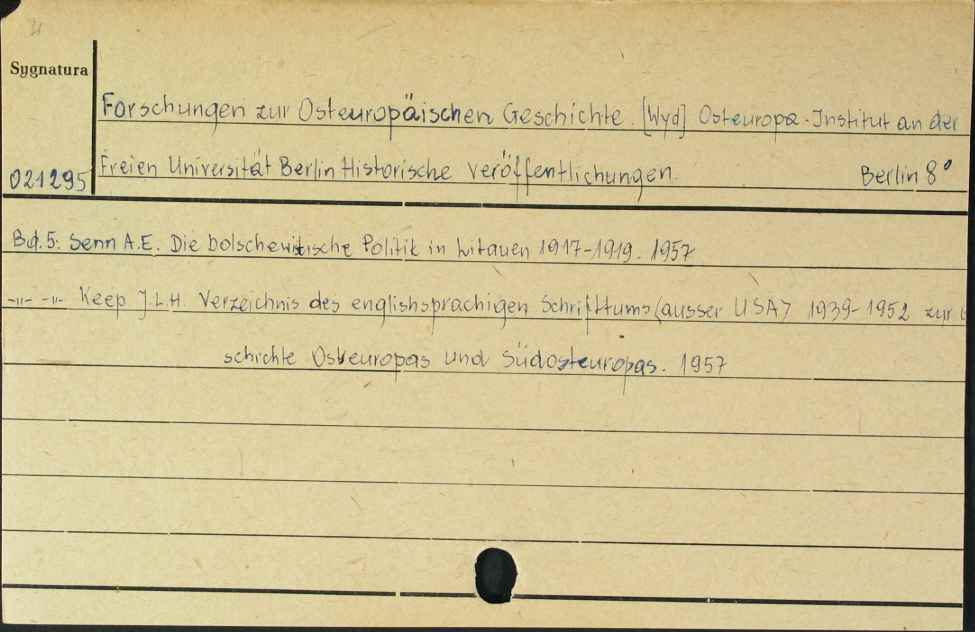 Sygnatura
Forschungen zur Osteuropäischen Geschichte. [Wyd] Osteuropa-Institut an der
021295 Freien Universität Berlin Historische Veröffentlichungen. Berlin 8°
Bd. 5: Senn A.E. Die bolschewistische Politik in Litauen 1917-1919. 1957
-"- -"- Keep J.L.H. Verzeichnis des englishsprachigen Schrifttums (ausser USA) 1939-1952 zur
schichte Osteuropas und Südosteuropas. 1957